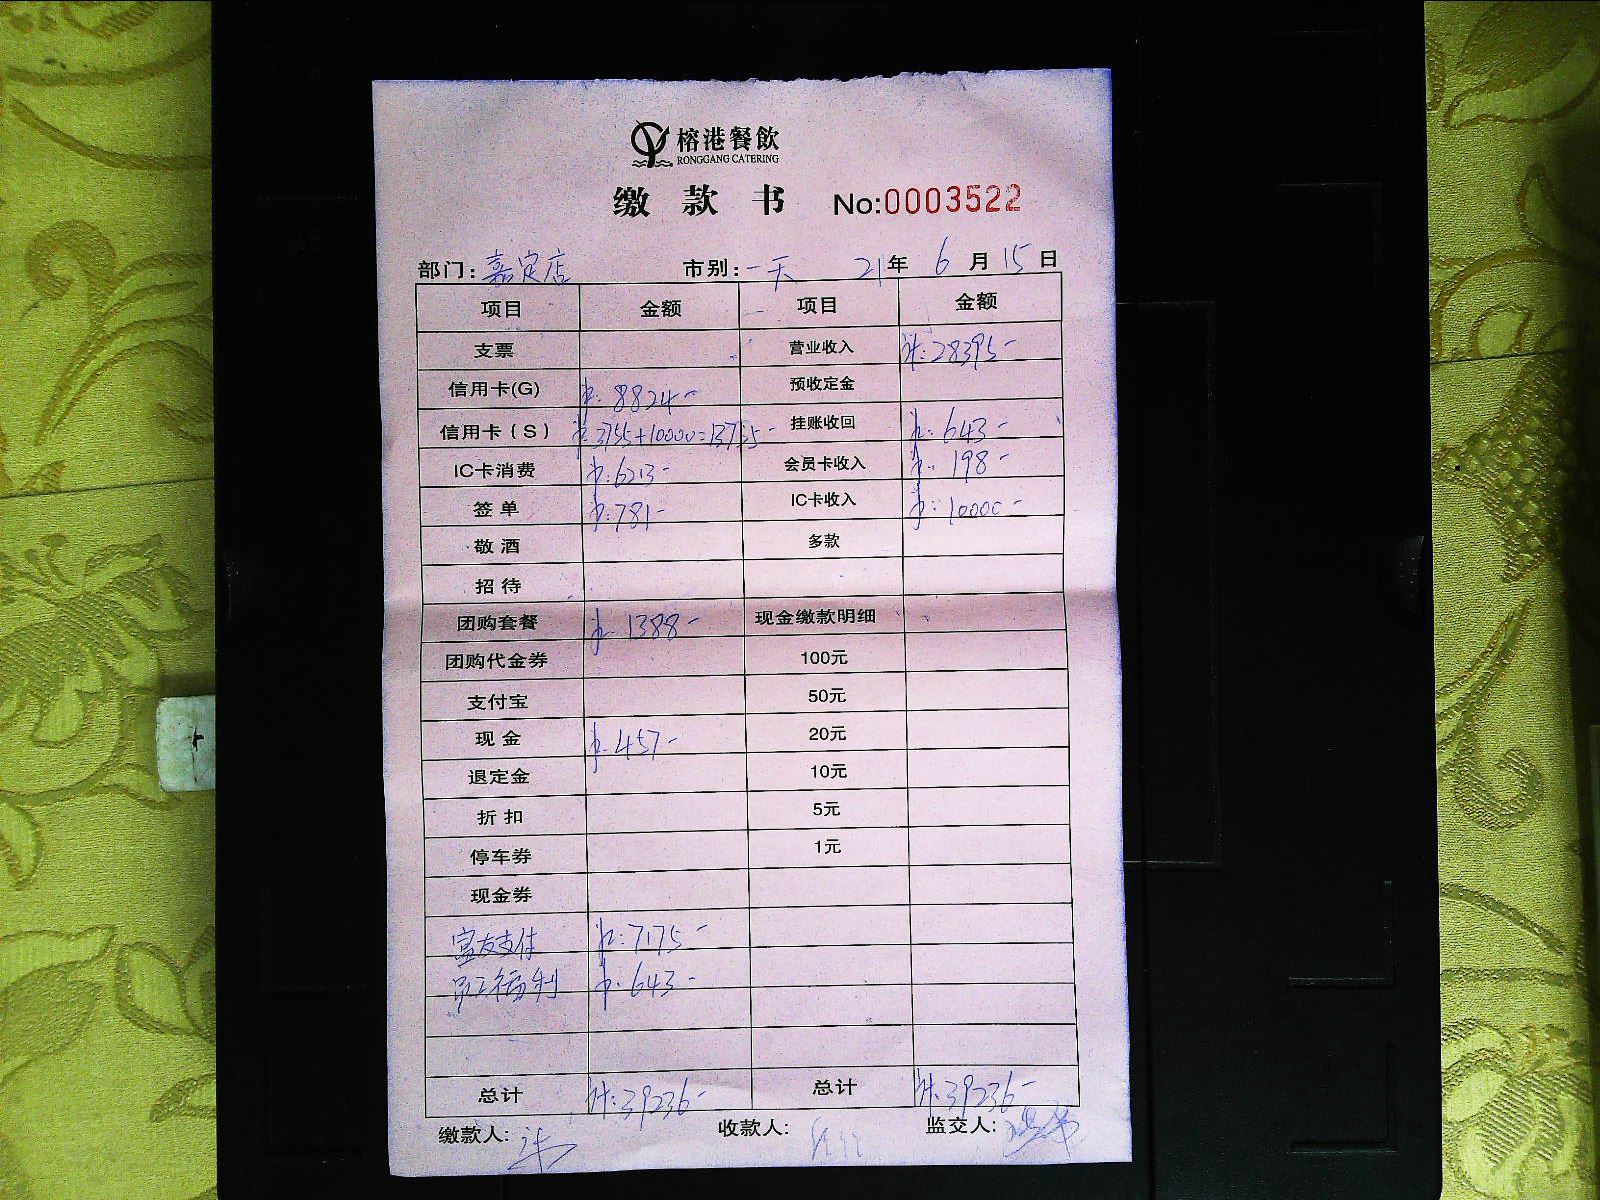 榕港餐飲
RONGGANG CATERING
缴款书 No:0003522
部门:嘉定店 市别:一天 21年6月15日
项目 金额 项目 金额
支票 营业收入 计:28395-
信用卡(G) 计:8824- 预收定金
信用卡(S) 计:3755+10000=13755- 挂账收回 计:643-
IC卡消费 计:6213- 会员卡收入 计:198-
签单 计:781- IC卡收入 计:10000-
敬酒 多款
招待
团购套餐 计:1388- 现金缴款明细
团购代金券 100元
支付宝 50元
现金 计:457- 20元
退定金 10元
折扣 5元
停车券 1元
现金券
富友支付 计:7175-
员工福利 计:643-
总计 计:39236- 总计 计:39236-
缴款人: 收款人: 监交人: